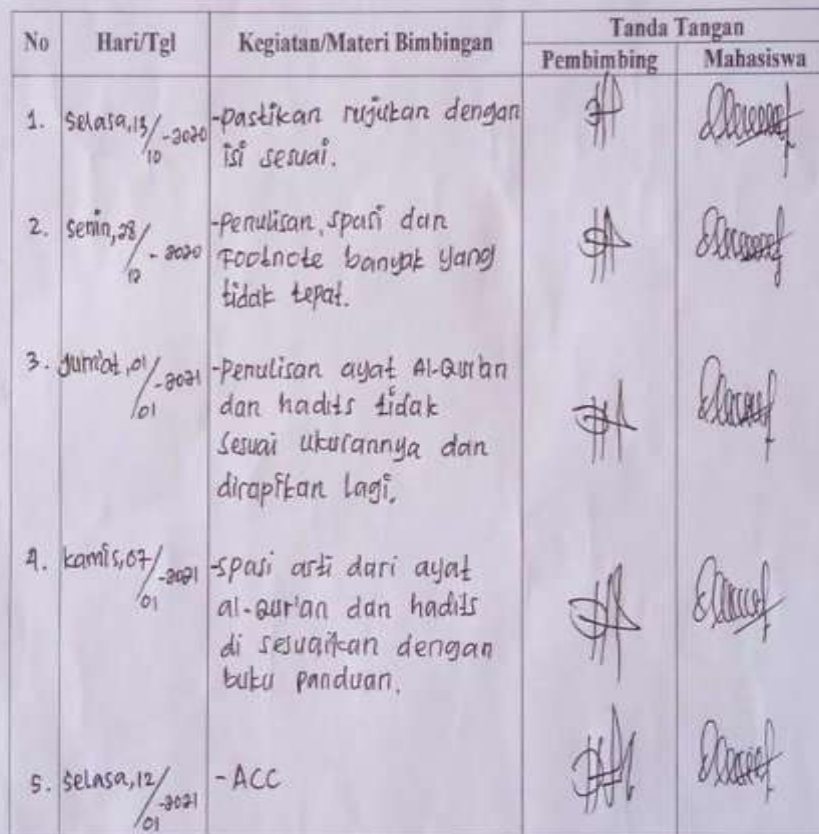 No Hari/Tgl Kegiatan/Materi Bimbingan Tanda Tangan
Pembimbing Mahasiswa
1. Selasa, 13/10-2020 -Pastikan rujukan dengan
isi sesuai.
2. Senin, 28/12-2020 -Penulisan, spasi dan
Footnote banyak yang
tidak tepat.
3. Jum'at, 01/01-2021 -Penulisan ayat Al-Qur'an
dan hadits tidak
sesuai ukurannya dan
dirapikan lagi.
4. kamis, 07/01-2021 -spasi arti dari ayat
al-Qur'an dan hadits
di sesuaikan dengan
buku panduan.
5. Selasa, 12/01-2021 - ACC